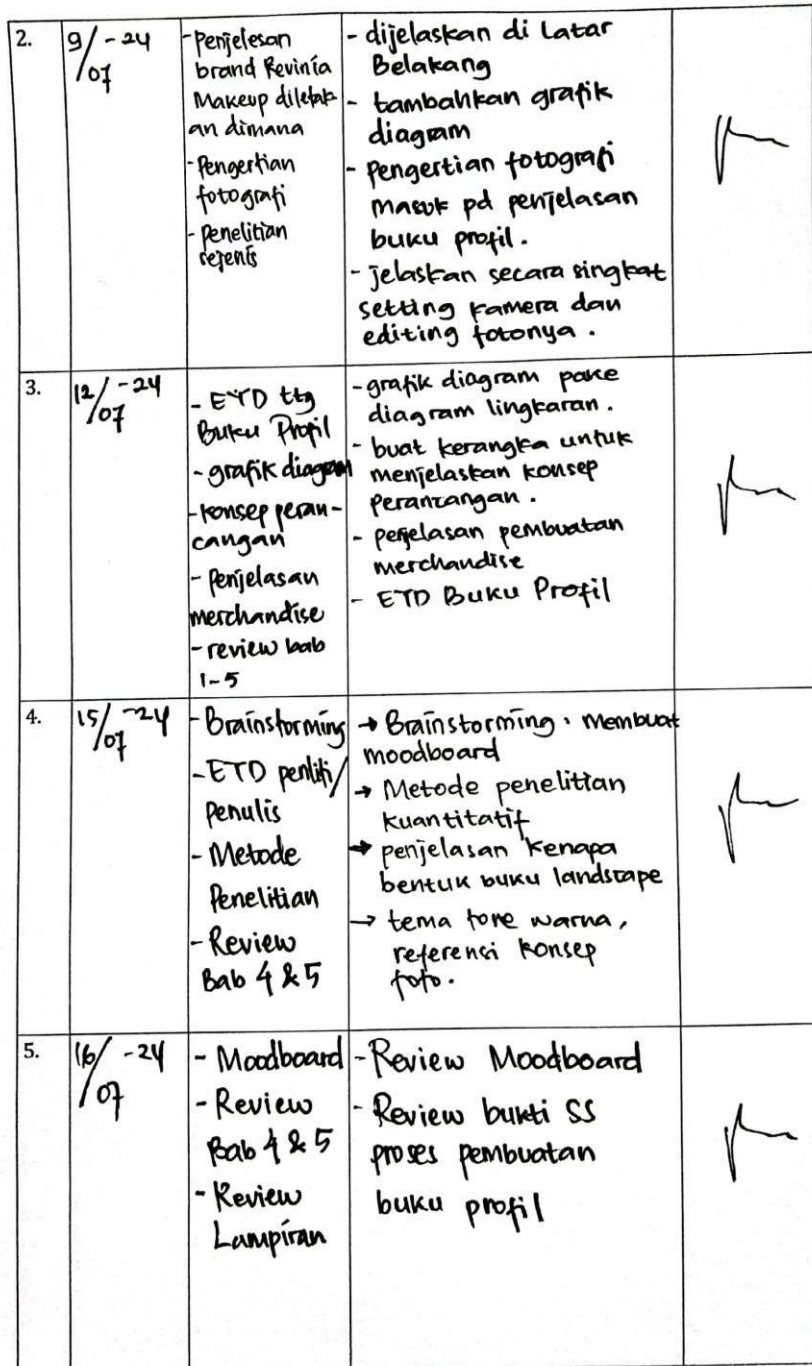 2.
9/07 -24
- Penjelesan
brand Revinia
Makeup diletak
an dimana
- Pengertian
fotografi
- Penelitian
sejenis
- dijelaskan di Latar
Belakang
- tambahkan grafik
diagram
- Pengertian fotografi
masuk pd penjelasan
buku profil.
- jelaskan secara singkat
setting kamera dan
editing fotonya.
3.
12/07 -24
- ETD ttg
Buku Profil
- grafik diagram
- konsep peran-
cangan
- Penjelasan
merchandise
- review bab
1-5
- grafik diagram pake
diagram lingkaran.
- buat kerangka untuk
menjelaskan konsep
perancangan.
- penjelasan pembuatan
merchandise
- ETD Buku Profil
4.
15/07 -24
- Brainstorming
- ETD penliti/
Penulis
- Metode
Penelitian
- Review
Bab 4 & 5
→ Brainstorming. membuat
moodboard
→ Metode penelitian
kuantitatif
→ penjelasan kenapa
bentuk buku landscape
→ tema tone warna,
referensi konsep
foto.
5.
16/07 -24
- Moodboard
- Review
Bab 4 & 5
- Review
Lampiran
- Review Moodboard
- Review bukti SS
proses pembuatan
buku profil